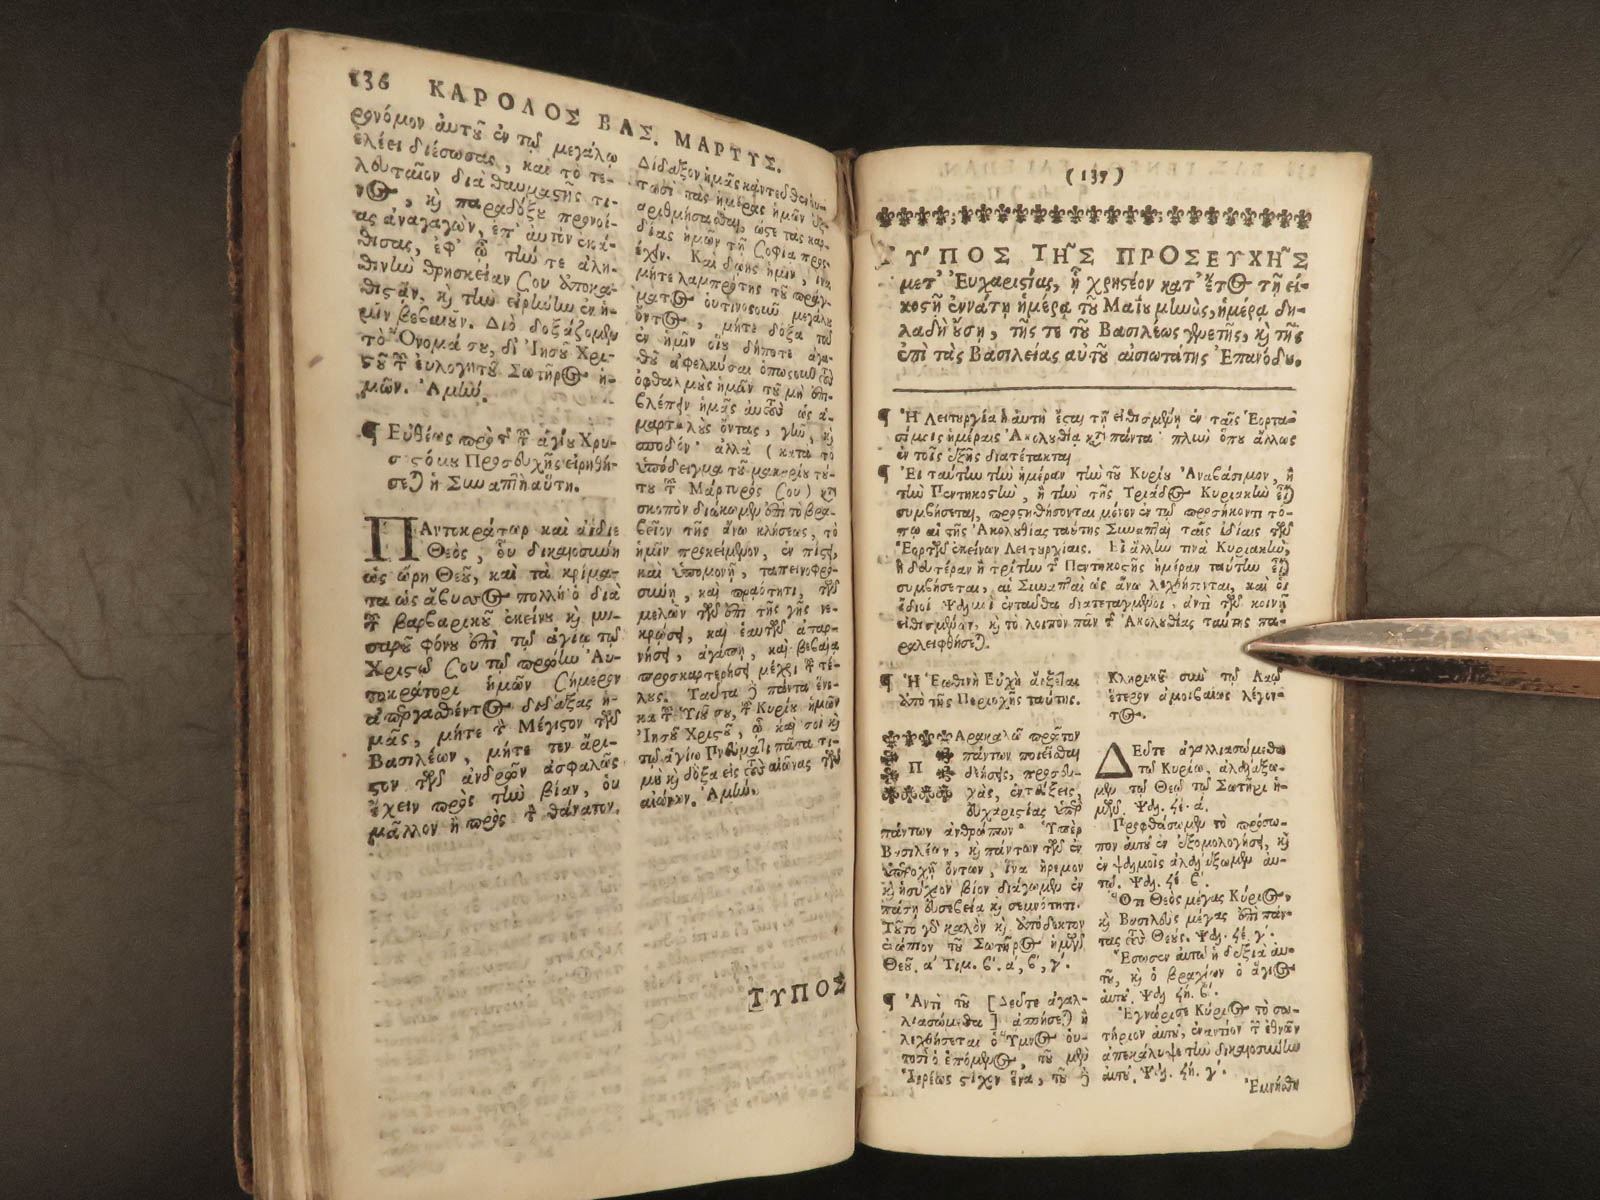 136 ΚΑΡΟΛΟΣ ΒΑΣ. ΜΑΡΤΥΣ.
ρονόμον αὐτοῦ ἐν τῷ μεγάλῳ
ἐλέει διέσωσας, καὶ τὸ τε-
λουταῖον διὰ θαυμαςῆς τι-
νος, κὶ παραδόξου προνοί-
ας ἀναγαγὼν, ἐπ' αὐτὸν ἐκά-
θισας, ἐφ' ᾧ τὴν τε ἀλη-
θινὴν θρησκείαν Σου ἀποκα-
θιςᾶν, κὶ τὴν εἰρήνην ἐν ἡ-
μῖν βεβαιοῦν. Διὸ δοξάζομεν
τὸ Ὄνομά σου, δι' Ἰησοῦ Χρι-
ςοῦ τοῦ εὐλογητοῦ Σωτῆρος ἡ-
μῶν. Ἀμήν.
¶ Εὐθέως πρὸ τῆς τοῦ ἁγίου Χρυ-
σοςόμου Προσευχῆς εἰρηθή-
σεται ἡ Συναπτὴ αὕτη.
ΠΑντοκράτωρ καὶ ἀΐδιε
Θεὸς, οὗ δικαιοσύνη
ὡς ὄρη Θεοῦ, καὶ τὰ κρίμα-
τα ὡς ἄβυσσος πολλὴ ὁ διὰ
τοῦ βαρβαρικοῦ ἐκείνου κὶ μι-
αροῦ φόνου ἐπὶ τῷ ἁγίῳ τῷ
Χριςῷ Σου τῷ πρώην Αὐ-
τοκράτορι ἡμῶν Σήμερον
ἀπεργαθέντος διδάξας ἡ-
μᾶς, μήτε τὸν Μέγιςον τῶν
Βασιλέων, μήτε τὸν ἄρι-
ςον τῶν ἀνδρῶν ἀσφαλῶς
ἔχειν πρὸς τὴν βίαν, οὐ
μᾶλλον ἢ πρὸς τὸν θάνατον.
Δίδαξον ἡμᾶς κἀντεῦθεν οὕ-
τωσὶ τὰς ἡμέρας ἡμῶν ἐξ-
αριθμήσασθαι, ὥςε τὰς καρ-
δίας ἡμῶν τῇ Σοφίᾳ προσ-
έχειν. Καὶ δώης ἡμῖν, ἵνα
μήτε λαμπρότης τοῦ πράγ-
ματος οὑτινοσοῦν μεγάλου
ὄντος, μήτε δόξα τοῦ
ἐν ἡμῖν οἵου δήποτε ἀγα-
θοῦ ἀφελκύσαι ὁπωσοῦν τοὺς
ὀφθαλμοὺς ἡμῶν τοῦ μὴ ἐπι-
βλέπειν ἡμᾶς αὐτοὺς ὡς ἁ-
μαρτωλοὺς ὄντας, γῆν, κὶ
σποδόν· ἀλλὰ (κατὰ τὸ
ὑπόδειγμα τοῦ μακαρίου τού-
του τοῦ Μάρτυρός Σου) κατὰ
σκοπὸν διώκωμεν ἐπὶ τὸ βρα-
βεῖον τῆς ἄνω κλήσεως, τὸ
ἡμῖν προκείμενον, ἐν πίςει,
καὶ ὑπομονῇ, ταπεινοφρο-
σύνῃ, καὶ πραότητι, τῶν
μελῶν τῶν ἐπὶ τῆς γῆς νε-
κρώσει, καὶ ἑαυτῶν ἀπαρ-
νήσει, ἀγάπῃ, καὶ βεβαίᾳ
προσκαρτερήσει μέχρι τοῦ τέ-
λους. Ταῦτα δὲ πάντα ἕνε-
κα τοῦ Ὑιοῦ σου, τοῦ Κυρίου ἡμῶν
Ἰησοῦ Χριςοῦ, ᾧ καὶ σοὶ κὶ
τῷ ἁγίῳ Πνεύματι πᾶσα τι-
μὴ κὶ δόξα εἰς τοὺς αἰῶνας τῶν
αἰώνων. Ἀμήν.
ΤΥΠΟΣ
(137)
ΤΥΠΟΣ ΤΗ͂Σ ΠΡΟΣΕΥΧΗ͂Σ
μετ' Εὐχαριςίας, ᾗ χρηςέον κατ' ἔτος τῇ εἰ-
κοςῇ ἐννάτῃ ἡμέρᾳ τοῦ Μαΐου μηνὸς, ἡμέρᾳ δη-
λαδὴ οὔσῃ, τῆς τε τοῦ Βασιλέως γενετῆς, κὶ τῆς
ἐπὶ τὰς Βασιλείας αὐτοῦ αἰσιωτάτης Ἐπανόδου.
¶ Ἡ Λειτυργία ἡ αὐτὴ ἔςαι τῇ εἰθισμένῃ ἐν ταῖς Ἑορτα-
σίμοις ἡμέραις Ἀκολουθίᾳ κατὰ πάντα· πλὴν ὅπου ἄλλως
ἐν τοῖς ἑξῆς διατέτακται
¶ Ἐὰν ταύτην τὴν ἡμέραν τὴν τοῦ Κυρίου Ἀναβάσιμον, ἢ
τὴν Πεντηκοςὴν, ἢ τὴν τῆς Τριάδος Κυριακὴν εἶναι
συμβήσεται, προςτεθήσονται μόνον ἐν τῷ προσήκοντι τό-
πῳ αἱ τῆς Ἀκολουθίας ταύτης Συναπταὶ ταῖς ἰδίαις τῶν
Ἑορτῶν ἐκείνων Λειτυργίαις. Εἰ ἄλλην τινὰ Κυριακὴν,
ἢ δευτέραν ἢ τρίτην τῆς Πεντηκοςῆς ἡμέραν ταύτην εἶναι
συμβήσεται, αἱ Συναπταὶ ὡς ἄνω λεχθήσονται, καὶ οἱ
ἴδιοι Ψαλμοὶ ἐνταῦθα διατεταγμένοι ἀντὶ τῶν κοινῇ
εἰθισμένων, κὶ τὸ λοιπὸν πᾶν τῆς Ἀκολουθίας ταύτης πα-
ραλειφθήσεται.
¶ Ἡ Ἑωθινὴ Εὐχὴ ἄρξεται
ἀπὸ τῆς Περιοχῆς ταύτης.
ΠΑρακαλῶ πρῶτον
πάντων ποιεῖσθαι
δεήσεις, προσευ-
χὰς, ἐντεύξεις,
εὐχαριςίας ὑπὲρ
πάντων ἀνθρώπων· Ὑπὲρ
Βασιλέων, κὶ πάντων τῶν ἐν
ὑπεροχῇ ὄντων, ἵνα ἤρεμον
κὶ ἡσύχιον βίον διάγωμεν ἐν
πάσῃ εὐσεβείᾳ κὶ σεμνότητι.
Τοῦτο γὰρ καλὸν κὶ ἀπόδεκτον
ἐνώπιον τοῦ Σωτῆρος ἡμῶν
Θεοῦ. αʹ Τιμ. βʹ. αʹ, βʹ, γʹ.
¶ Ἀντὶ τοῦ [Δεῦτε ἀγαλ-
λιασώμεθα] ᾀσήσεται ἢ
λεχθήσεται ὁ Ὕμνος οὑ-
τοσὶ ὁ ἑπόμενος, τοῦ μὲν
Ἱερέως ςίχον ἕνα, τοῦ δὲ
Κληρικοῦ σὺν τῷ Λαῷ
ἕτερον ἀμοιβαίως λέγον-
τος.
ΔΕῦτε ἀγαλλιασώμεθα
τῷ Κυρίῳ, ἀλαλάξω-
μεν τῷ Θεῷ τῷ Σωτῆρι ἡ-
μῶν. Ψαλ. ϟεʹ. αʹ.
Προφθάσωμεν τὸ πρόσω-
πον αὐτοῦ ἐν ἐξομολογήσει, κὶ
ἐν ψαλμοῖς ἀλαλάξωμεν αὐ-
τῷ. Ψαλ. ϟεʹ. βʹ.
Ὅτι Θεὸς μέγας Κύριος
κὶ Βασιλεὺς μέγας ἐπὶ πάν-
τας τοὺς Θεούς. Ψαλ. ϟεʹ. γʹ.
Ἔσωσεν αὐτῷ ἡ δεξιὰ αὐ-
τοῦ, κὶ ὁ βραχίων ὁ ἅγιος
αὐτοῦ. Ψαλ. ϟηʹ. βʹ.
Ἐγνώρισε Κύριος τὸ σω-
τήριον αὐτοῦ, ἐναντίον τῶν ἐθνῶν
ἀπεκάλυψε τὴν δικαιοσύνην
αὐτοῦ. Ψαλ. ϟηʹ. γʹ.
Ἐμνήσθη